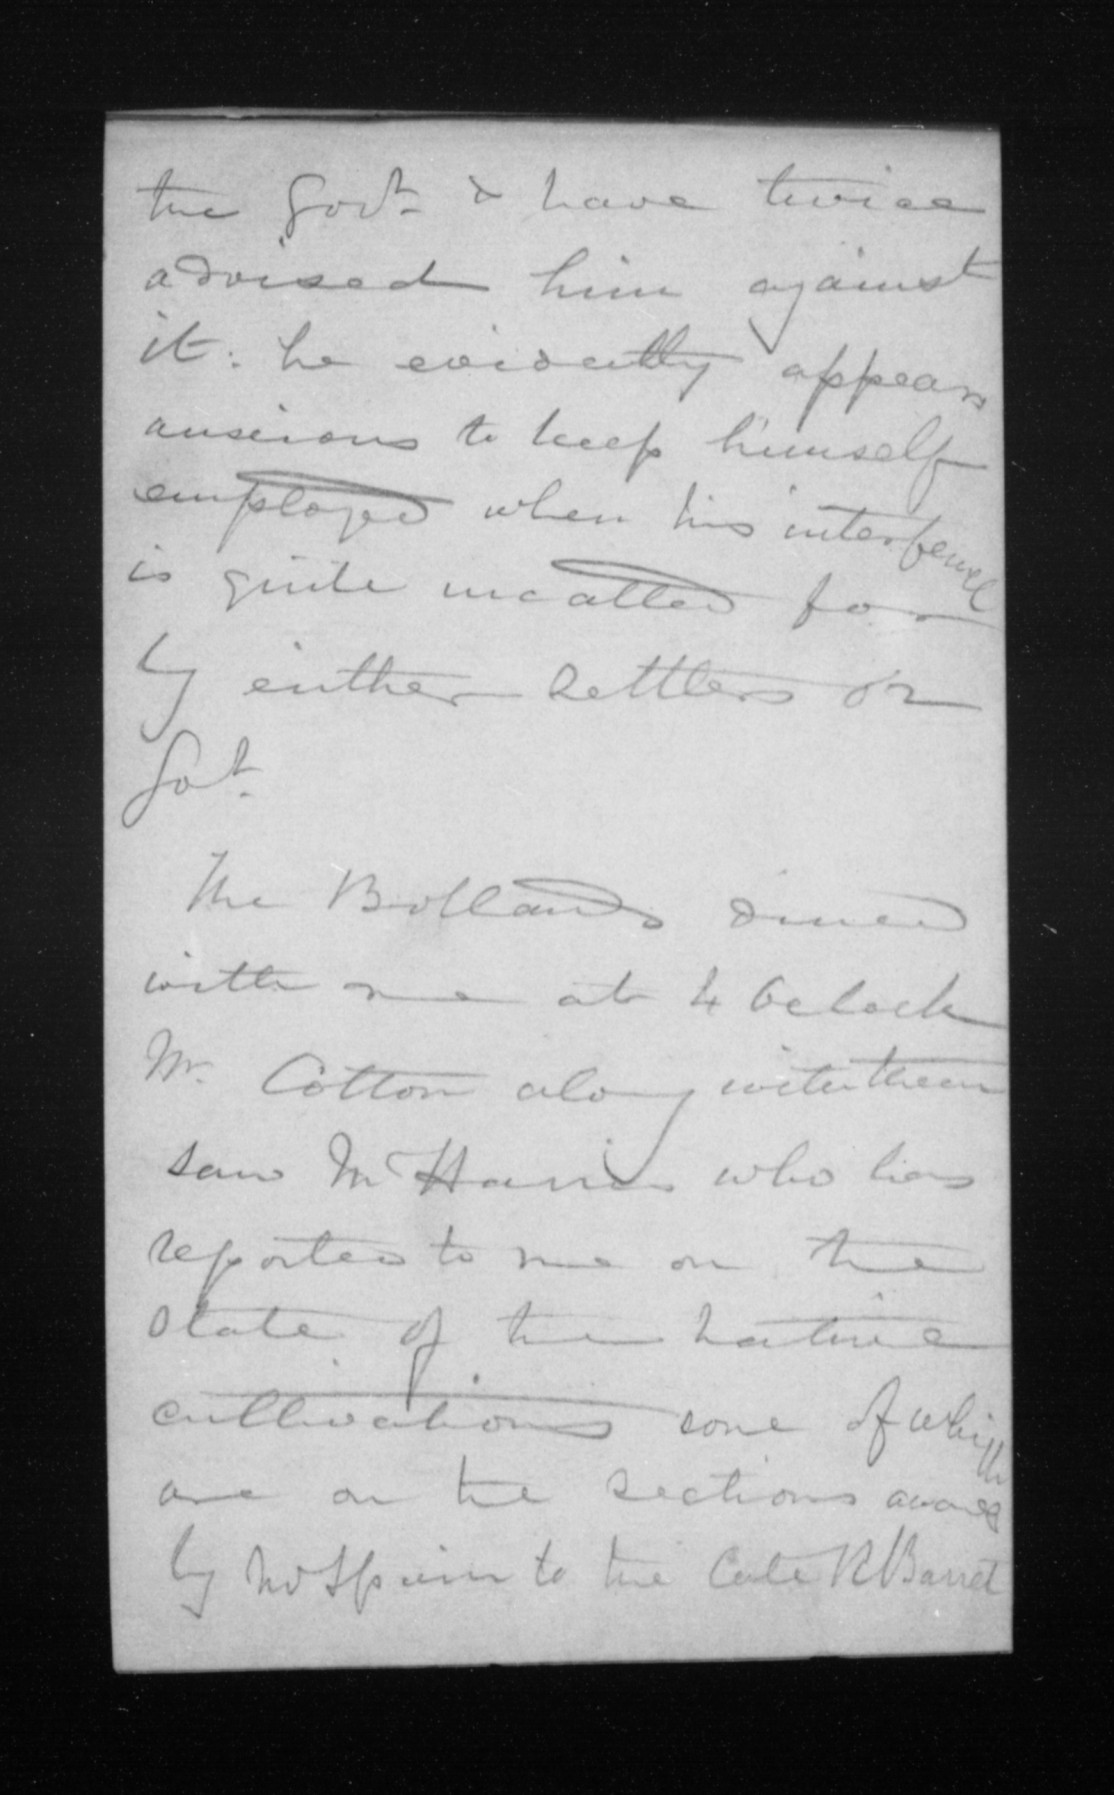 the Govt & have twice
advised him against
it. he evidently appears
anxious to keep himself
employed when his interference
is quite uncalled for
by either settlers or
Govt.
The Bollands dined
with me at 4 Oclock
Mr. Cotton along with them
saw Mr Harris who has
reported to me on the
state of the native
cultivations some of which
are on the sections award
by Mr Spain to the late R Barret